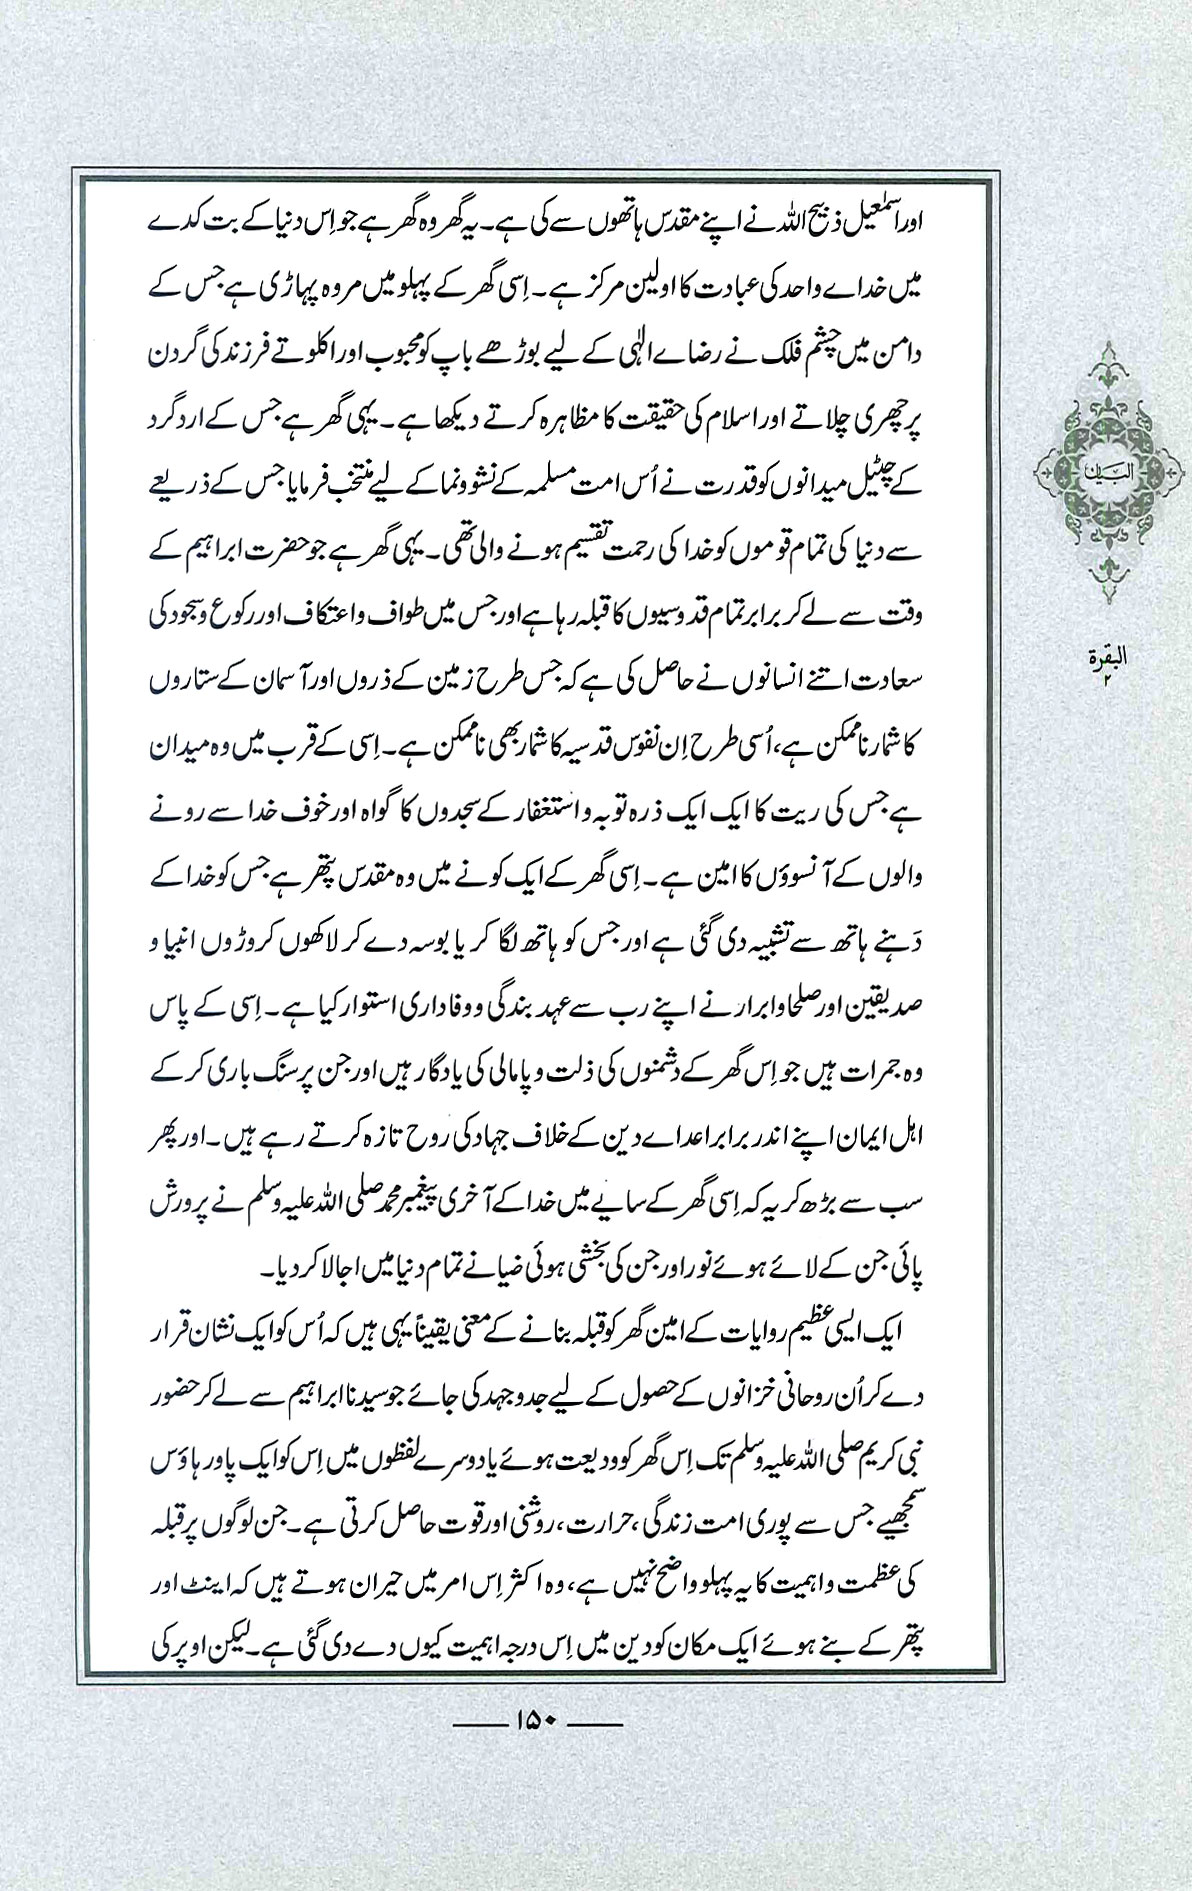 اور اسمٰعیل ذبیح اللہ نے اپنے مقدس ہاتھوں سے کی ہے۔ یہ گھر وہ گھر ہے جو اِس دنیا کے بت کدے
میں خداے واحد کی عبادت کا اولین مرکز ہے۔ اِسی گھر کے پہلو میں مروہ پہاڑی ہے جس کے
دامن میں چشم فلک نے رضاے الٰہی کے لیے بوڑھے باپ کو محبوب اور اکلوتے فرزند کی گردن
پر چھری چلاتے اور اسلام کی حقیقت کا مظاہرہ کرتے دیکھا ہے۔ یہی گھر ہے جس کے ارد گرد
کے چٹیل میدانوں کو قدرت نے اُس امت مسلمہ کے نشوونما کے لیے منتخب فرمایا جس کے ذریعے
سے دنیا کی تمام قوموں کو خدا کی رحمت تقسیم ہونے والی تھی۔ یہی گھر ہے جو حضرت ابراہیم کے
وقت سے لے کر برابر تمام قدوسیوں کا قبلہ رہا ہے اور جس میں طواف و اعتکاف اور رکوع و سجود کی
سعادت اتنے انسانوں نے حاصل کی ہے کہ جس طرح زمین کے ذروں اور آسمان کے ستاروں
کا شمار ناممکن ہے، اُسی طرح اِن نفوس قدسیہ کا شمار بھی ناممکن ہے۔ اِسی کے قرب میں وہ میدان
ہے جس کی ریت کا ایک ایک ذرہ توبہ و استغفار کے سجدوں کا گواہ اور خوف خدا سے رونے
والوں کے آنسوؤں کا امین ہے۔ اِسی گھر کے ایک کونے میں وہ مقدس پتھر ہے جس کو خدا کے
دَہنے ہاتھ سے تشبیہ دی گئی ہے اور جس کو ہاتھ لگا کر یا بوسہ دے کر لاکھوں کروڑوں انبیا و
صدیقین اور صلحا و ابرار نے اپنے رب سے عہد بندگی و وفاداری استوار کیا ہے۔ اِسی کے پاس
وہ جمرات ہیں جو اِس گھر کے دشمنوں کی ذلت و پامالی کی یادگار ہیں اور جن پر سنگ باری کر کے
اہل ایمان اپنے اندر برابر اعداے دین کے خلاف جہاد کی روح تازہ کرتے رہے ہیں۔ اور پھر
سب سے بڑھ کر یہ کہ اِسی گھر کے سایے میں خدا کے آخری پیغمبر محمد صلی اللہ علیہ وسلم نے پرورش
پائی جن کے لائے ہوئے نور اور جن کی بخشی ہوئی ضیا نے تمام دنیا میں اجالا کر دیا۔
ایک ایسی عظیم روایات کے امین گھر کو قبلہ بنانے کے معنی یقیناً یہی ہیں کہ اُس کو ایک نشان قرار
دے کر اُن روحانی خزانوں کے حصول کے لیے جدوجہد کی جائے جو سیدنا ابراہیم سے لے کر حضور
نبی کریم صلی اللہ علیہ وسلم تک اِس گھر کو ودیعت ہوئے یا دوسرے لفظوں میں اِس کو ایک پاور ہاؤس
سمجھیے جس سے پوری امت زندگی، حرارت، روشنی اور قوت حاصل کرتی ہے۔ جن لوگوں پر قبلہ
کی عظمت و اہمیت کا یہ پہلو واضح نہیں ہے، وہ اکثر اِس امر میں حیران ہوتے ہیں کہ اینٹ اور
پتھر کے بنے ہوئے ایک مکان کو دین میں اِس درجہ اہمیت کیوں دے دی گئی ہے۔ لیکن اوپر کی
البیان
البقرة
۲
۱۵۰